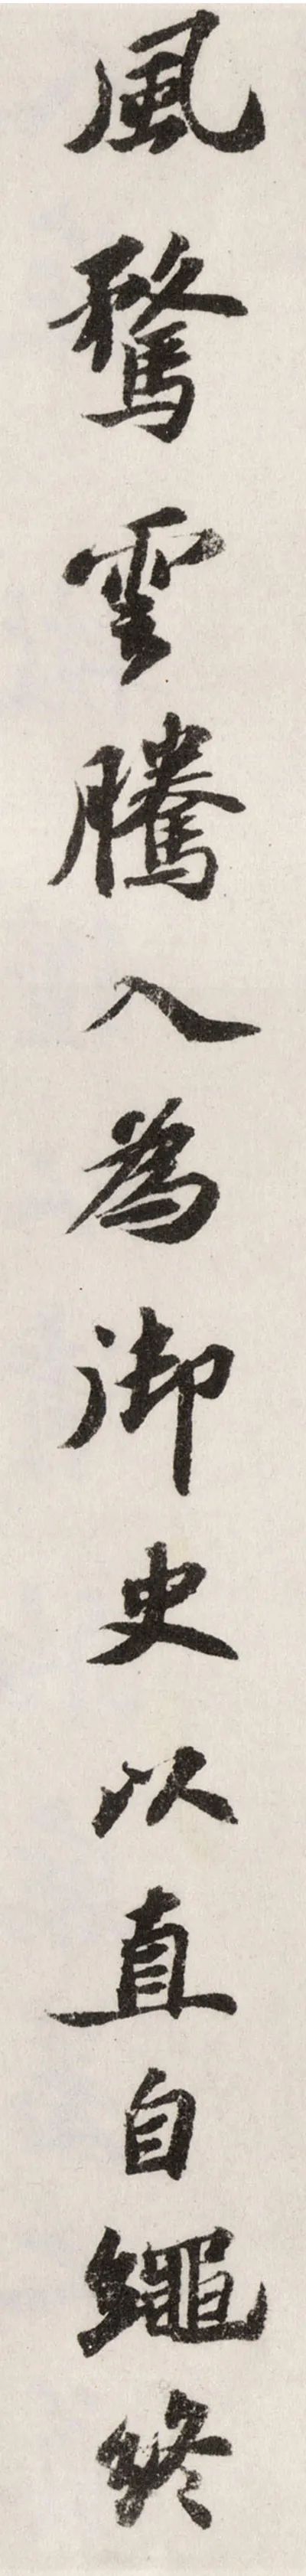 風騖雲騰入為御史以直自繩終